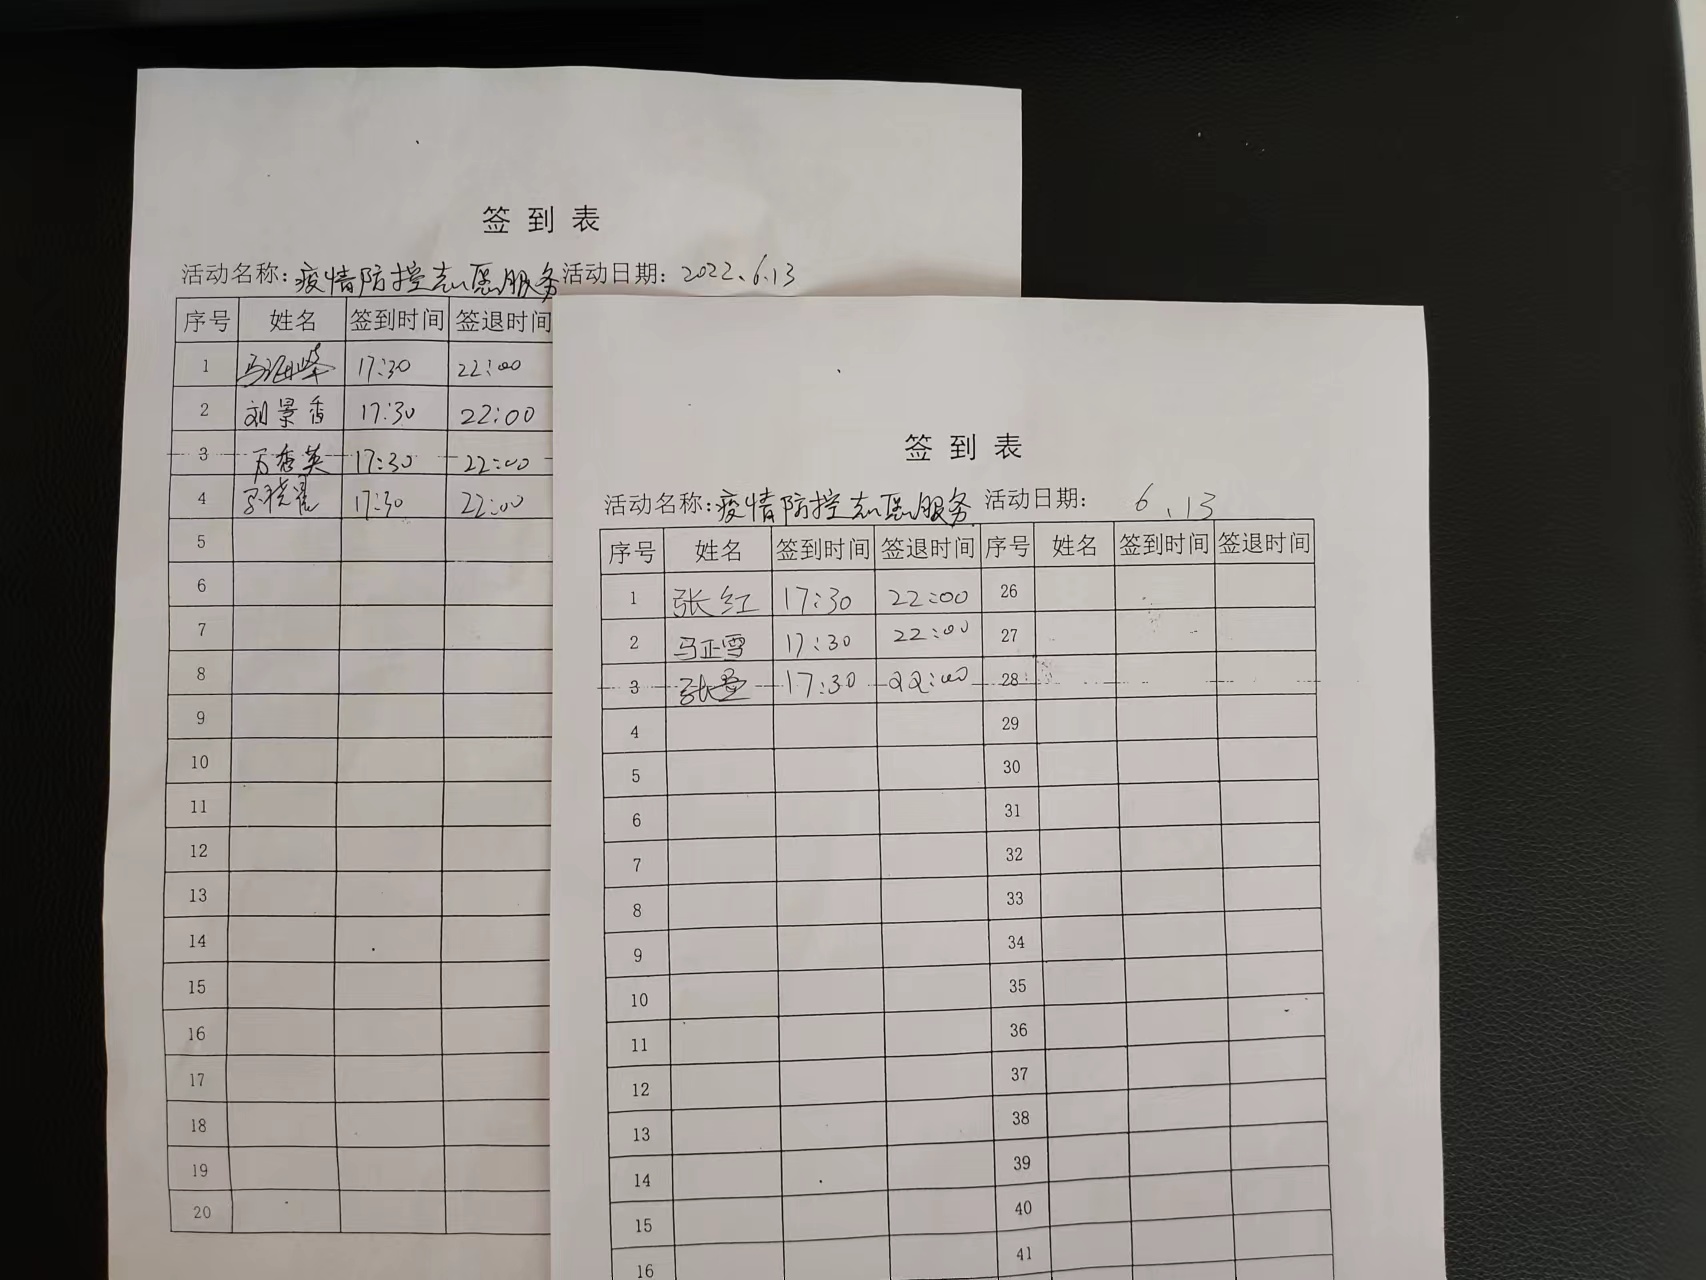 签到表
活动名称:疫情防控志愿服务 活动日期: 2022.6.13
序号 姓名 签到时间 签退时间
1 17:30 22:00
2 刘景香 17:30 22:00
3 万秀英 17:30 22:00
4 17:30 22:00
5
6
7
8
9
10
11
12
13
14
15
16
17
18
19
20
签到表
活动名称:疫情防控志愿服务 活动日期: 6.13
序号 姓名 签到时间 签退时间 序号 姓名 签到时间 签退时间
1 张红 17:30 22:00 26
2 马正雪 17:30 22:00 27
3 17:30 22:00 28
4 29
5 30
6 31
7 32
8 33
9 34
10 35
11 36
12 37
13 38
14 39
15 40
16 41